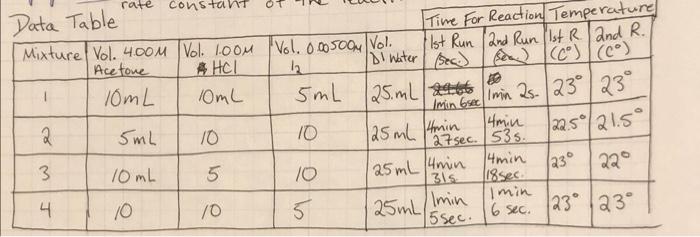 rate constant of the
Data Table
Time For Reaction Temperature
Mixture Vol. 4.00M Acetone Vol. 1.00M HCl Vol. 0.00500M I2 Vol. DI Water 1st Run (sec.) 2nd Run (sec.) 1st R (C°) 2nd R. (C°)
1 10mL 10mL 5mL 25.mL 1min 6sec 1min 2s. 23° 23°
2 5mL 10 10 25mL 4min 27sec. 4min 53s. 22.5° 21.5°
3 10mL 5 10 25mL 4min 31s 4min 18sec. 23° 22°
4 10 10 5 25mL 1min 5sec. 1min 6 sec. 23° 23°